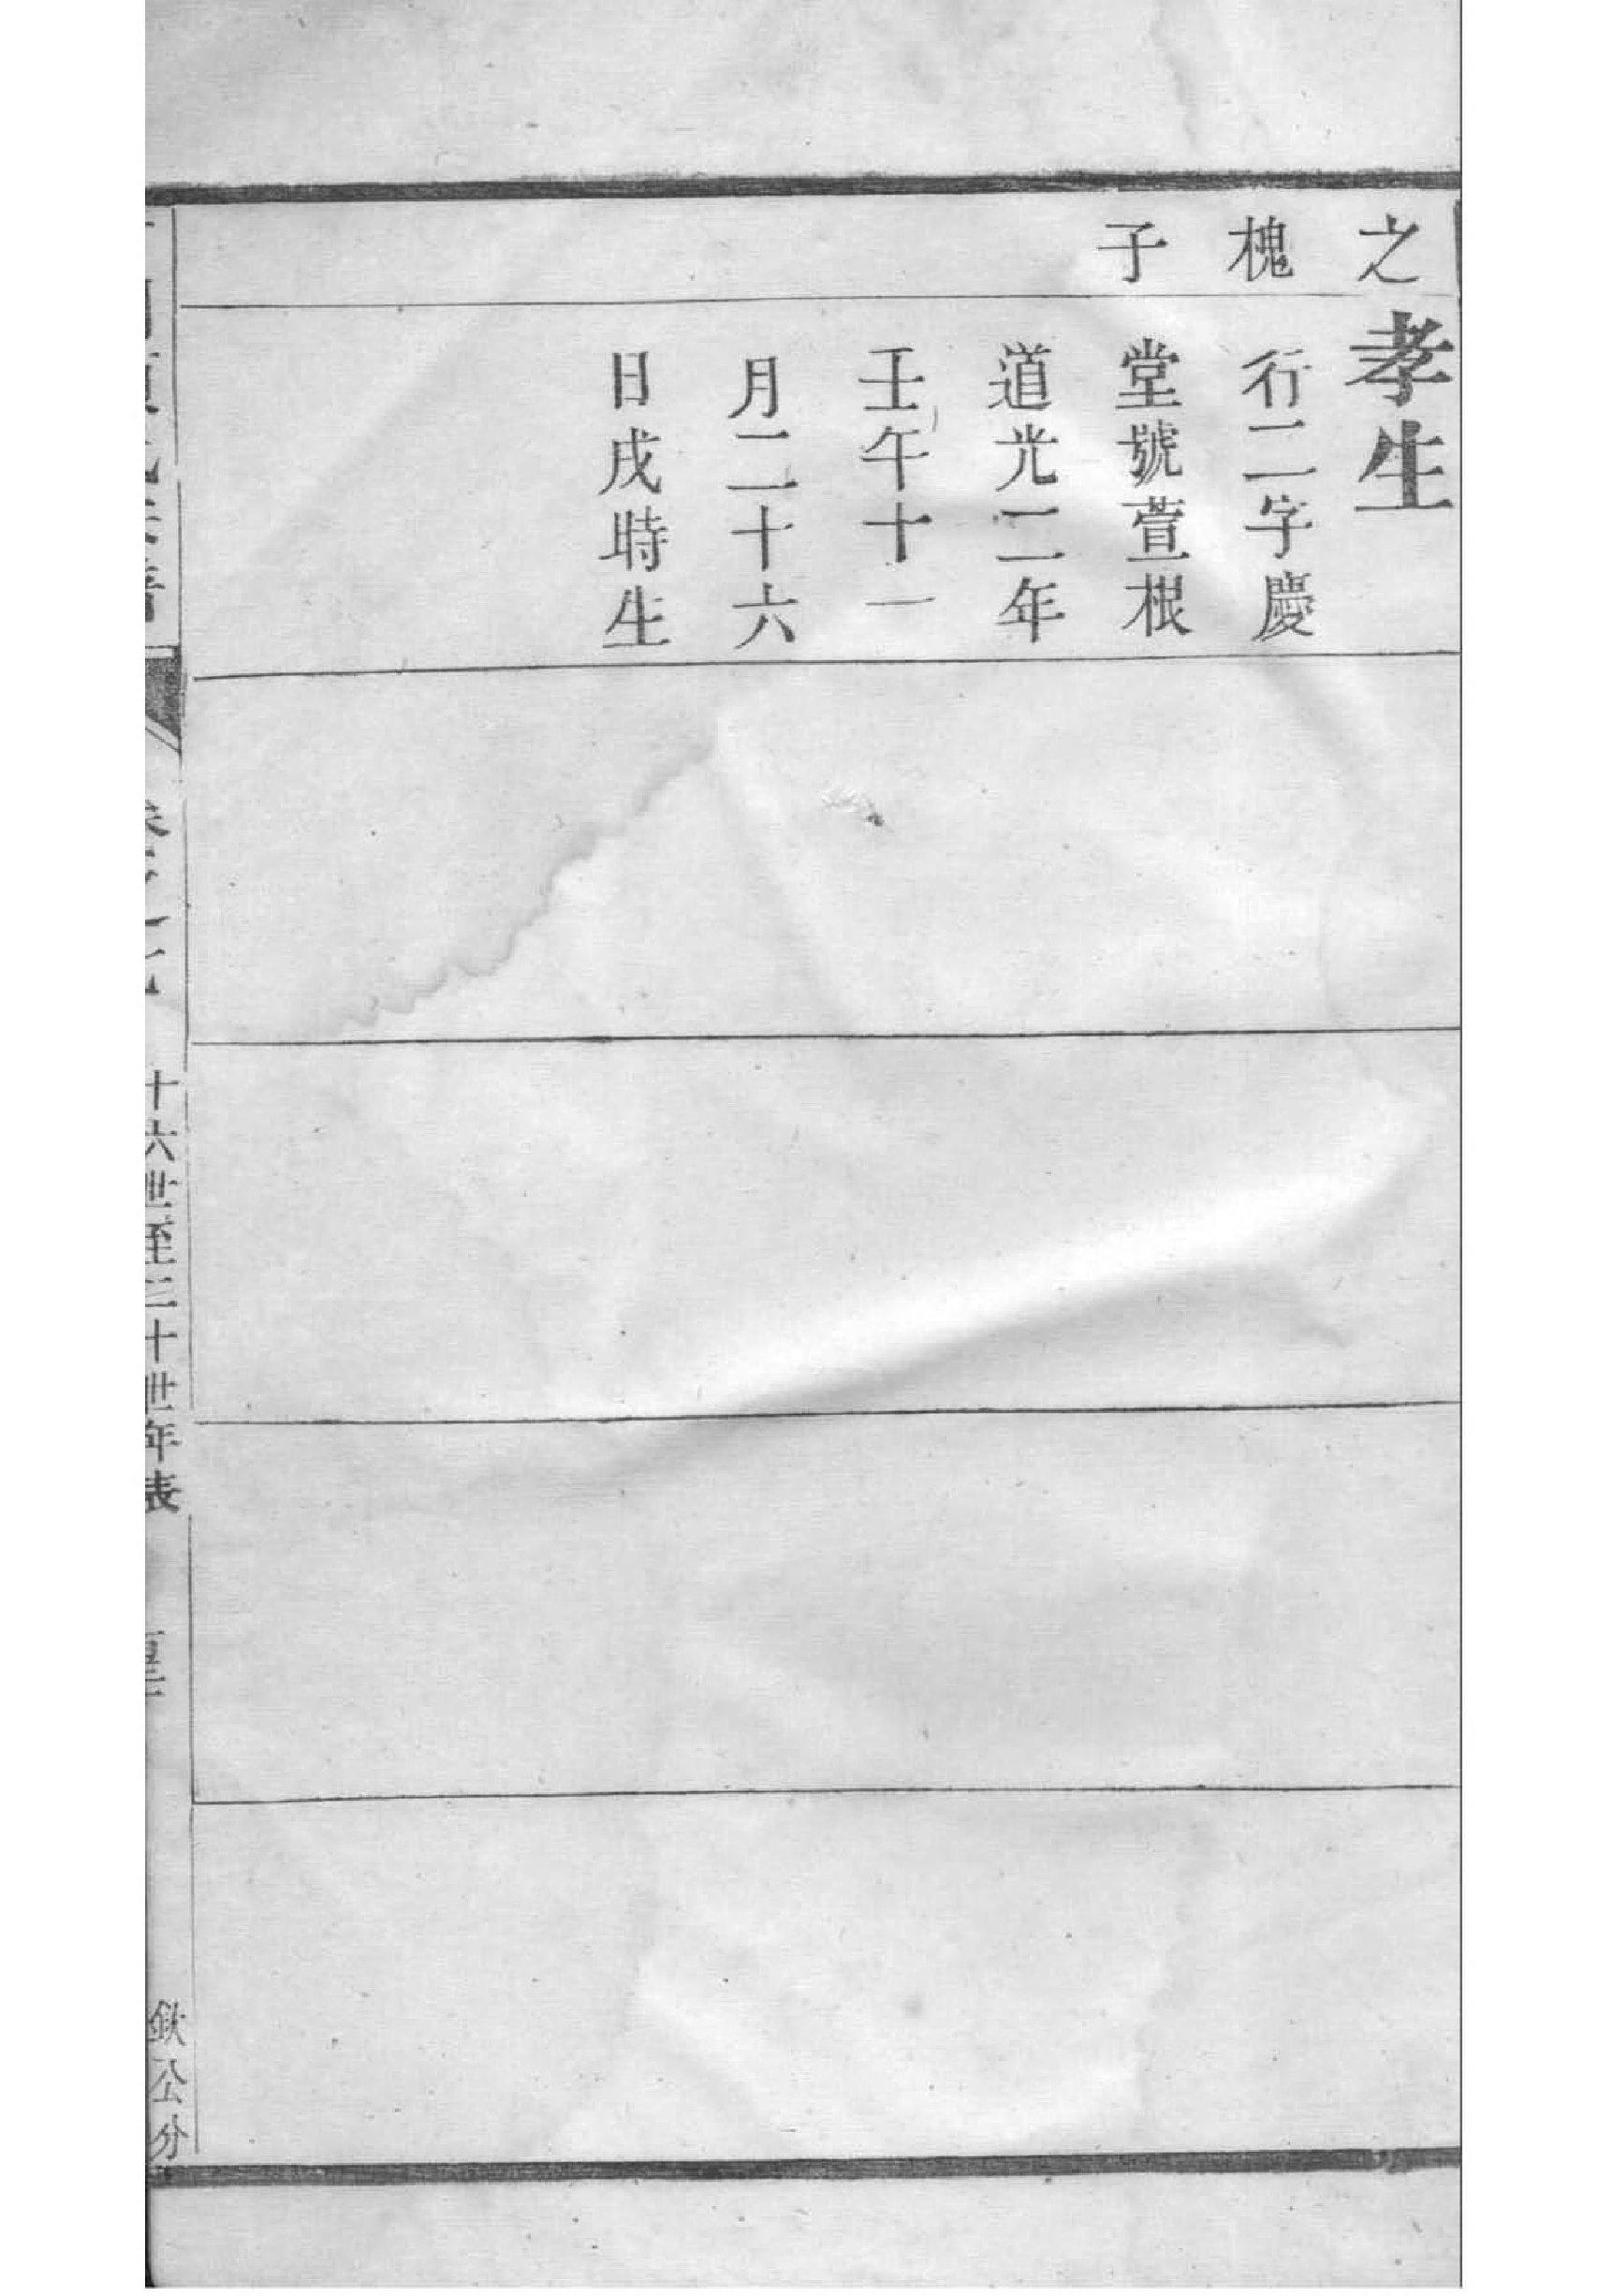 之
槐
子
孝生
行二字慶
堂號萱根
道光二年
壬午十一
月二十六
日戌時生
十六世至三十世年表
欽公分